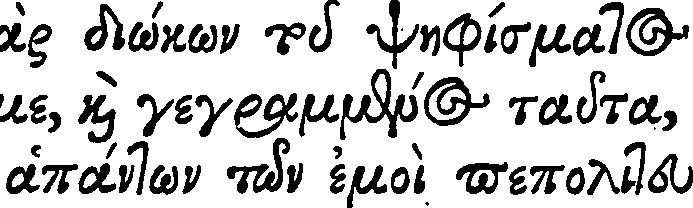 ὰς διώκων τοῦ ψηφίσματος
με, καὶ γεγραμμένος ταῦτα,
ἁπάντων τῶν ἐμοὶ πεπολιτευ